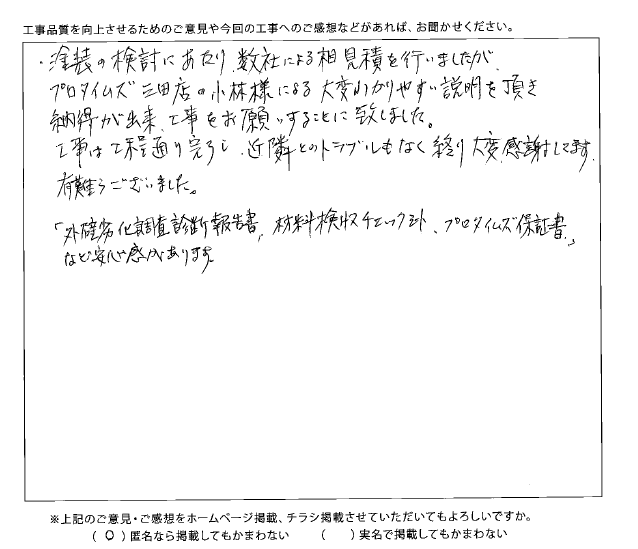 工事品質を向上させるためのご意見や今回の工事へのご感想などがあれば、お聞かせください。
・塗装の検討にあたり、数社による相見積を行いましたが、
プロタイムズ三田店の小林様による大変わかりやすい説明を頂き
納得が出来、工事をお願いすることに致しました。
工事は工程通り完了し、近隣とのトラブルもなく終り大変感謝してます。
有難うございました。
「外壁劣化調査診断報告書」、材料検収チェックシート、プロタイムズ保証書」
など安心感があります。
※上記のご意見・ご感想をホームページ掲載、チラシ掲載させていただいてもよろしいですか。
(○)匿名なら掲載してもかまわない ( )実名で掲載してもかまわない